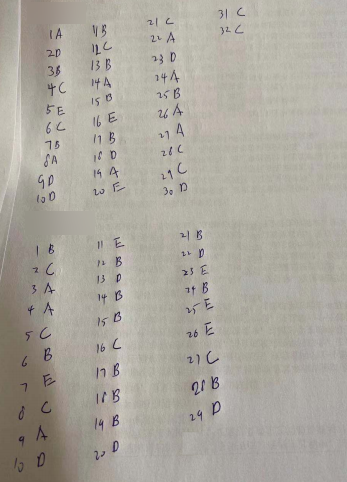 1 A
2 D
3 B
4 C
5 E
6 C
7 B
8 A
9 D
10 D
11 B
12 C
13 B
14 A
15 B
16 E
17 B
18 D
19 A
20 E
21 C
22 A
23 D
24 A
25 B
26 A
27 A
28 C
29 C
30 D
31 C
32 C
1 B
2 C
3 A
4 A
5 C
6 B
7 E
8 C
9 A
10 D
11 E
12 B
13 D
14 B
15 B
16 C
17 B
18 B
19 B
20 D
21 B
22 D
23 E
24 B
25 E
26 E
27 C
28 B
29 D